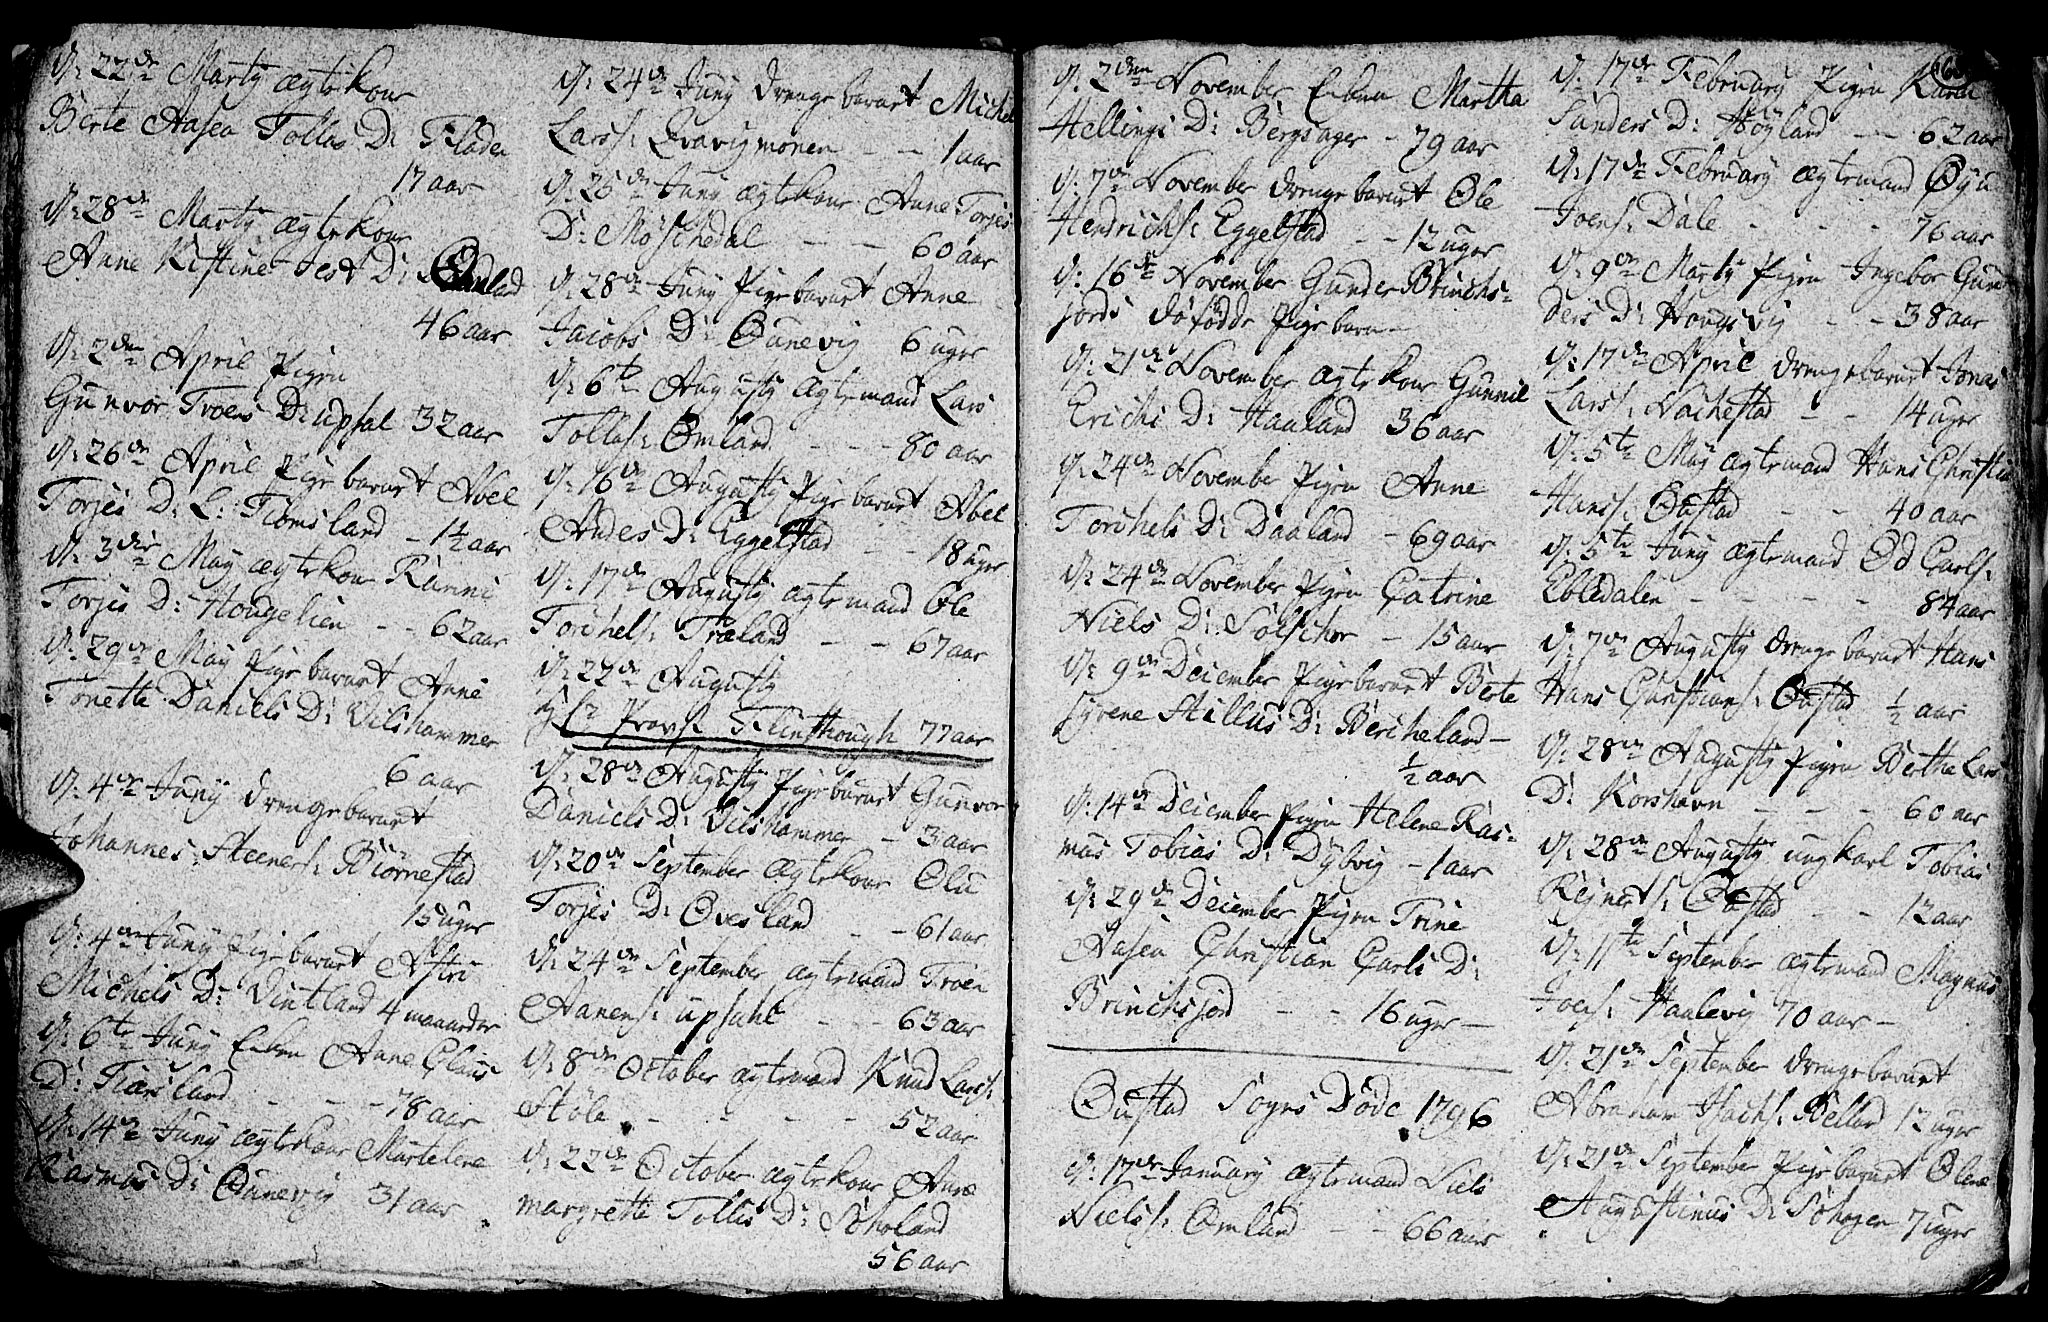 d: 22de Martÿ ægtekone
Berte Aasea Tollas D: Fladen
17 aar
d: 28de Martÿ ægtekone
Anne Kistine Test D:
46 aar
d: 2den April Pigen
Gunvor Troens D: upsal 32 aar
d: 26de April Pige barnet Abel
Torjes D: L: Fiomsland - 1½ aar
d: 3die May ægtekone Karini
Torjes D: Hougelien - - 62 aar
d: 29de May Pige barnet Anne
Tonette Daniels D: Vilshammer
6 aar
d: 4de Junÿ drenge barnet
Johannes Steeners: Biörnestad
15 uger
d: 4de Junÿ Pige barnet Astri
Michels D: Vintland 4 maaneder
d: 6te Junÿ Enken Anne Claus
D: Fiærsland - - - 78 aar
d: 14de Junÿ ægtekone Martelene
Rasmus D: Øunevig 31 aar
d: 24de Junÿ drenge barnet Michel
Larss: Qvavigmonen - - 1 aar
d: 26de Junÿ ægtekone Anne Torjes
D: Möschedal - - 60 aar
d: 28de Junÿ Pige barnet Anne
Jacobs D: Øunevig 6 uger
d: 6te Augustÿ ægtemand Lars
Tollefs: Ømland - - - 80 aar
d: 16de Augustÿ Pige barnet Abel
Andes D: Eggelstad - - 18 uger
d: 17de Augustÿ ægtemand Ole
Torchels: Træland - - 67 aar
d: 22de Augustÿ
Hr Provst Flinthough 77 aar
d: 28de Augustÿ Pige barnet Gunvor
Daniels D: Vilshammer - 3 aar
d: 20de September ægtekone Olu
Torjes D: Øvesland - - 61 aar
d: 24de September ægtemand Troen
Aanens: upsahl - - - 63 aar
d: 8de October ægtemand Knud Larss:
Stöle - - - - - 52 aar
d: 22de October ægtekone Anne
margrette Tollis D: Söholand
56 aar
d: 2den November Enken Martha
Hellings D: Bergsager - 79 aar
d: 7de November drenge barnet Ole
Hendrichs: Eggelstad - - 12 uger
d: 16de November Gunder Brinchs=
jords dö födde Pige barn -
d: 21de November ægtekone Gunnil
Erichs D: Haaland 36 aar
d: 24de November Pigen Anne
Torchels D: Daaland - 69 aar
d: 24de November Pigen Catrine
Niels D: Sölschor - 15 aar
d: 9de December Pige barnet Berte
syrene Stillus D: Bercheland -
½ aar
d: 14de December Pigen Helene Ras=
mus Tobias D: Dÿbvig - 1 aar
d: 29de December Pigen Trine
Aasea Christian Carls D:
Brinchsjord - - 16 uger -
Øustad Sogns Döde 1796
d: 17de Januarÿ ægtemand Niels
Niels: Ømland - - 66 aar
d: 17de Februarÿ Pigen Karen
Sanders D: Höyland - - 62 aar
d: 17de Februarÿ ægtemand Øyun
Joens: Dale - - - - 76 aar
d: 9de Martÿ Pigen Ingebor Gun=
ders D: Hougsvig - - 38 aar
d: 17de April drengebarnet Jonas
Larss: Nachestad - - 14 uger
d: 5te May ægtemand Hans Christian
Hanss: Øustad - - - 40 aar
d: 5te Junÿ ægtemand Od Carls:
Ebledalen - - - - 84 aar
d: 7de Augustÿ drenge barnet Hans
Hans Christians: Øustad ½ aar
d: 28de Augustÿ Pigen Bertha Lars
D: Korshavn - - - 60 aar
d: 28de Augustÿ ung karl Tobias
Rejnerts: Øustad - - 12 aar
d: 11te September ægtemand Magnus
Joens: Haalevig 70 aar -
d: 21de September drenge barnet
Abraham Isachs: Belland 12 uger
d: 21de September Pige barnet Olene
Augustinus D: Söhagen 7 uger